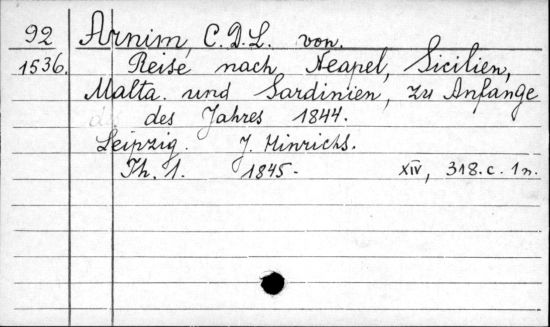 92 Arnim, C. D. L. von.
1536. Reise nach Neapel, Sicilien,
Malta und Sardinien, zu Anfange
des Jahres 1844.
Leipzig. J. Hinrichs.
Th. 1. 1845. XIV, 318.c. 1 n.